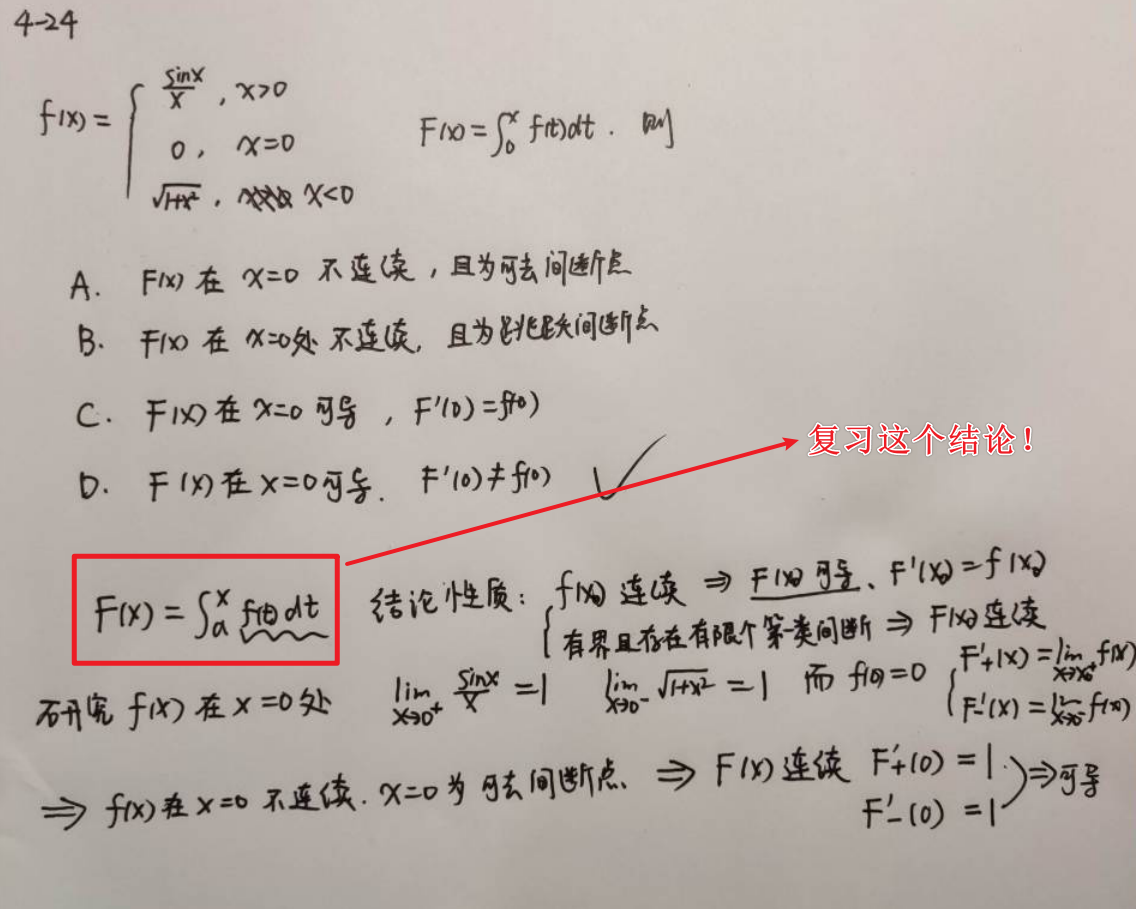 4-24
f(x) = { sinx/x , x>0
0 , x=0
√(1+x²) , x<0
F(x) = ∫₀ˣ f(t)dt . 则
A. F(x) 在 x=0 不连续 , 且为可去间断点
B. F(x) 在 x=0处 不连续, 且为跳跃间断点
C. F(x) 在 x=0 可导 , F'(0) = f(0)
D. F(x) 在 x=0可导. F'(0) ≠ f(0) ✓
复习这个结论！
F(x) = ∫ₐˣ f(t) dt 结论性质: { f(x) 连续 ⇒ F(x) 可导、F'(x) = f(x)
有界且存在有限个第一类间断 ⇒ F(x) 连续
{ F'₊(x) = lim x→x₀⁺ f(x)
F'₋(x) = lim x→x₀⁻ f(x)
研究 f(x) 在 x=0处 lim x→0⁺ sinx/x = 1 lim x→0⁻ √(1+x²) = 1 而 f(0) = 0
⇒ f(x) 在 x=0 不连续. x=0 为可去间断点. ⇒ F(x) 连续 F'₊(0) = 1 ⇒可导
F'₋(0) = 1